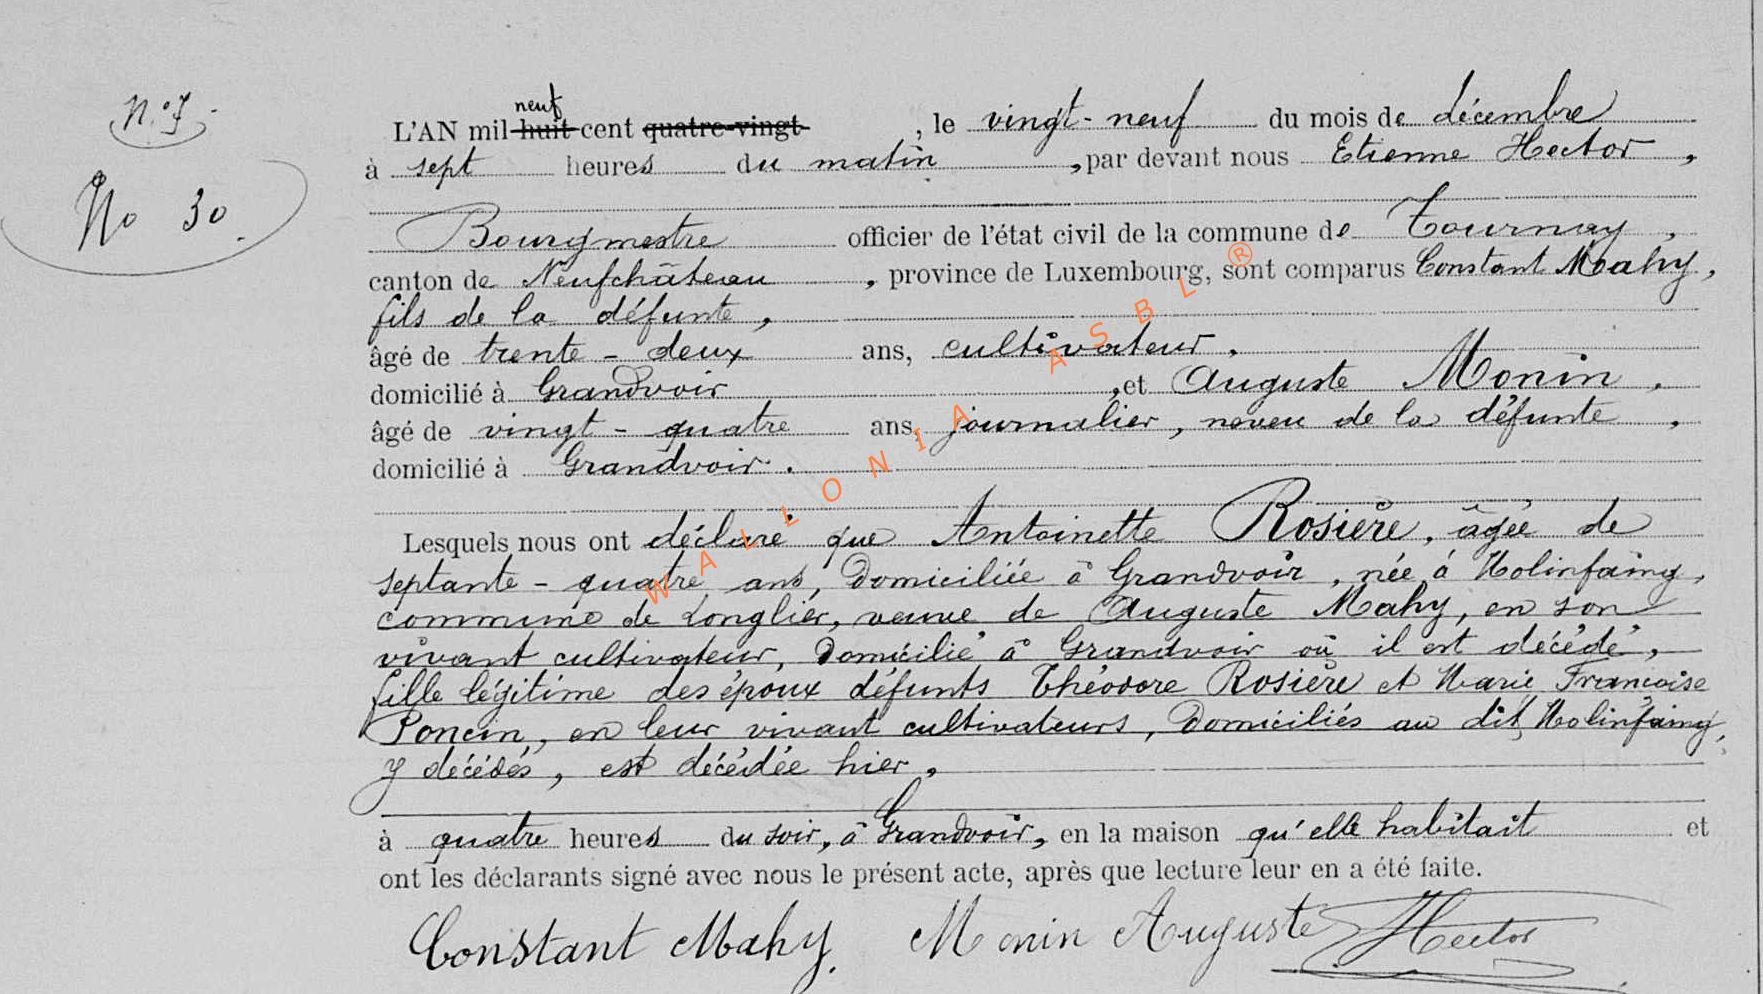 N° 7
No 30.
L'AN mil huit neuf cent quatre-vingt , le vingt-neuf du mois de décembre
à sept heures du matin , par devant nous Etienne Hector ,
Bourgmestre officier de l'état civil de la commune de Tournay ,
canton de Neufchâteau , province de Luxembourg, sont comparus Constant Mahy ,
fils de la défunte ,
âgé de trente-deux ans, cultivateur .
domicilié à Grandvoir , et Auguste Monin ,
âgé de vingt-quatre ans, journalier, neveu de la défunte ,
domicilié à Grandvoir .
Lesquels nous ont déclaré que Antoinette Rosière, âgée de
septante-quatre ans, domiciliée à Grandvoir, née à Molinfaing,
commune de Longlier, veuve de Auguste Mahy, en son
vivant cultivateur, domicilié à Grandvoir où il est décédé,
fille légitime des époux défunts Théodore Rosière et Marie Françoise
Poncin, en leur vivant cultivateurs, domiciliés au dit Molinfaing,
y décédés, est décédée hier,
à quatre heures du soir, à Grandvoir, en la maison qu'elle habitait et
ont les déclarants signé avec nous le présent acte, après que lecture leur en a été faite.
Constant Mahy. Monin Auguste Hector
WALLONIA ASBL ®